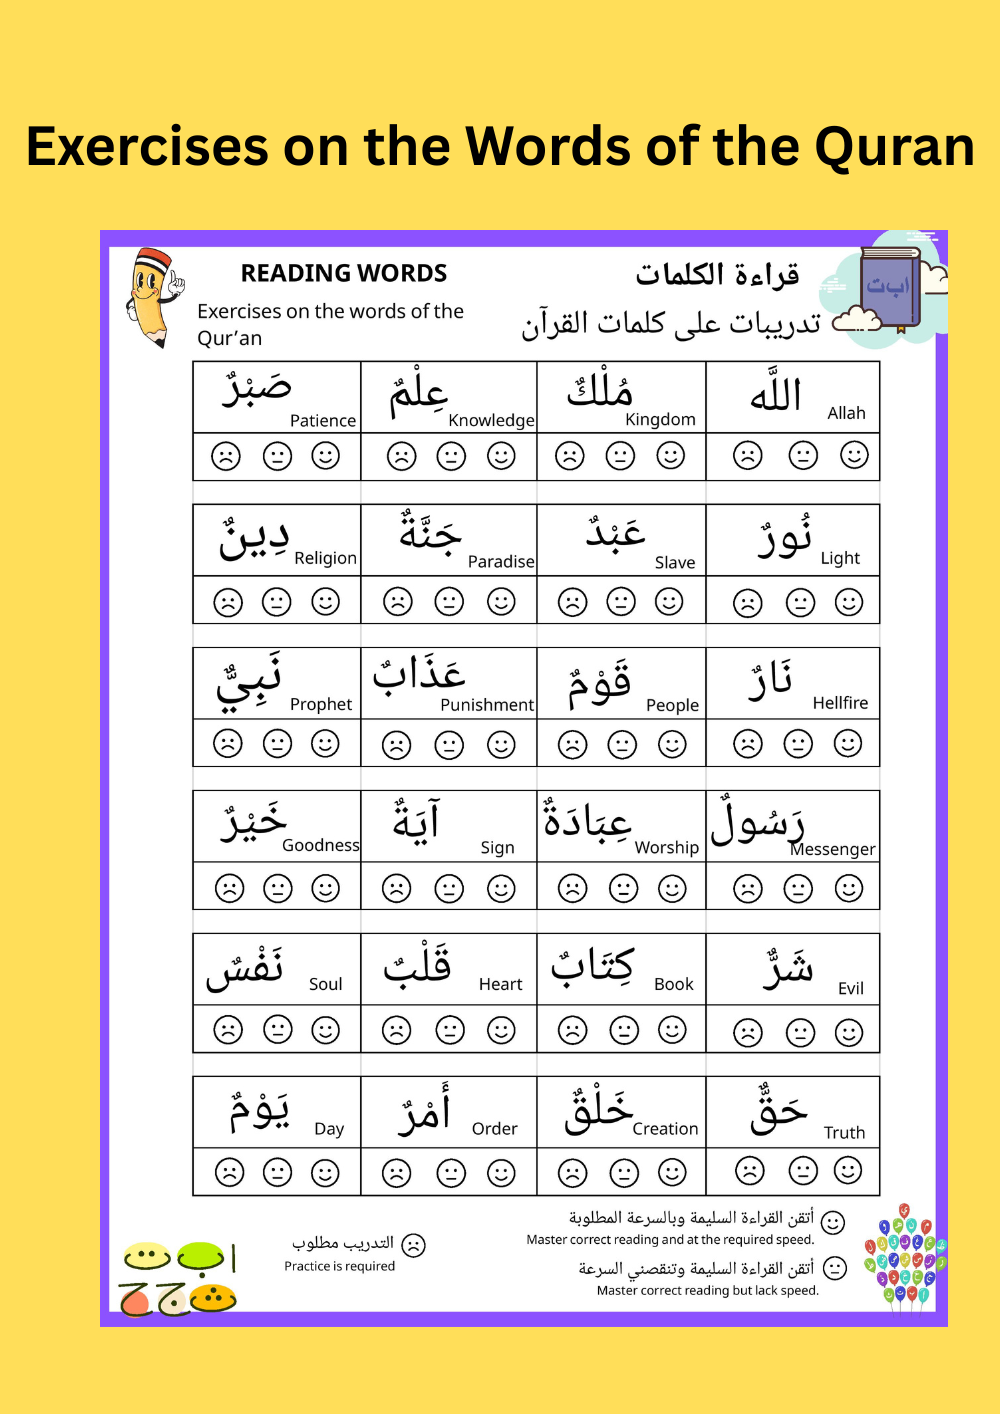 Exercises on the Words of the Quran
READING WORDS
قراءة الكلمات
Exercises on the words of the
Qur’an
تدريبات على كلمات القرآن
ابت
اللَّه Allah
مُلْكٌ Kingdom
عِلْمٌ Knowledge
صَبْرٌ Patience
نُورٌ Light
عَبْدٌ Slave
جَنَّةٌ Paradise
دِينٌ Religion
نَارٌ Hellfire
قَوْمٌ People
عَذَابٌ Punishment
نَبِيٌّ Prophet
رَسُولٌ Messenger
عِبَادَةٌ Worship
آيَةٌ Sign
خَيْرٌ Goodness
شَرٌّ Evil
كِتَابٌ Book
قَلْبٌ Heart
نَفْسٌ Soul
حَقٌّ Truth
خَلْقٌ Creation
أَمْرٌ Order
يَوْمٌ Day
أتقن القراءة السليمة وبالسرعة المطلوبة
Master correct reading and at the required speed.
أتقن القراءة السليمة وتنقصني السرعة
Master correct reading but lack speed.
التدريب مطلوب
Practice is required
ا ب ت
ث ج ح